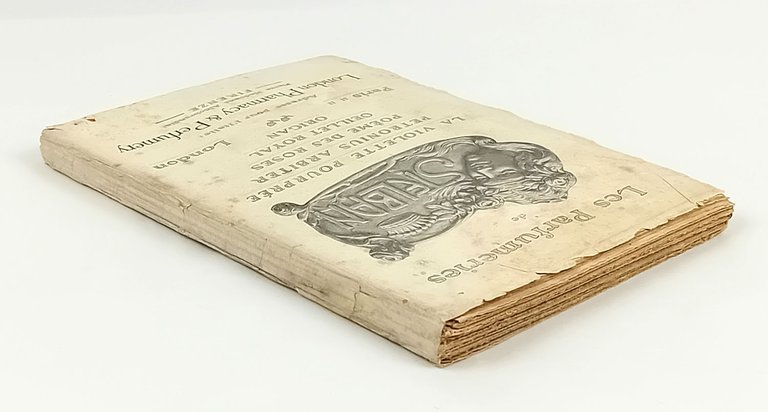 Les Parfumeries
de
LA VIOLETTE POURPRÉE
PETRONIUS ARBITER
POÈME DES ROSES
ŒILLET ROYAL
ORIGAN
Paris London
London Pharmacy & Perfumery
FIRENZE